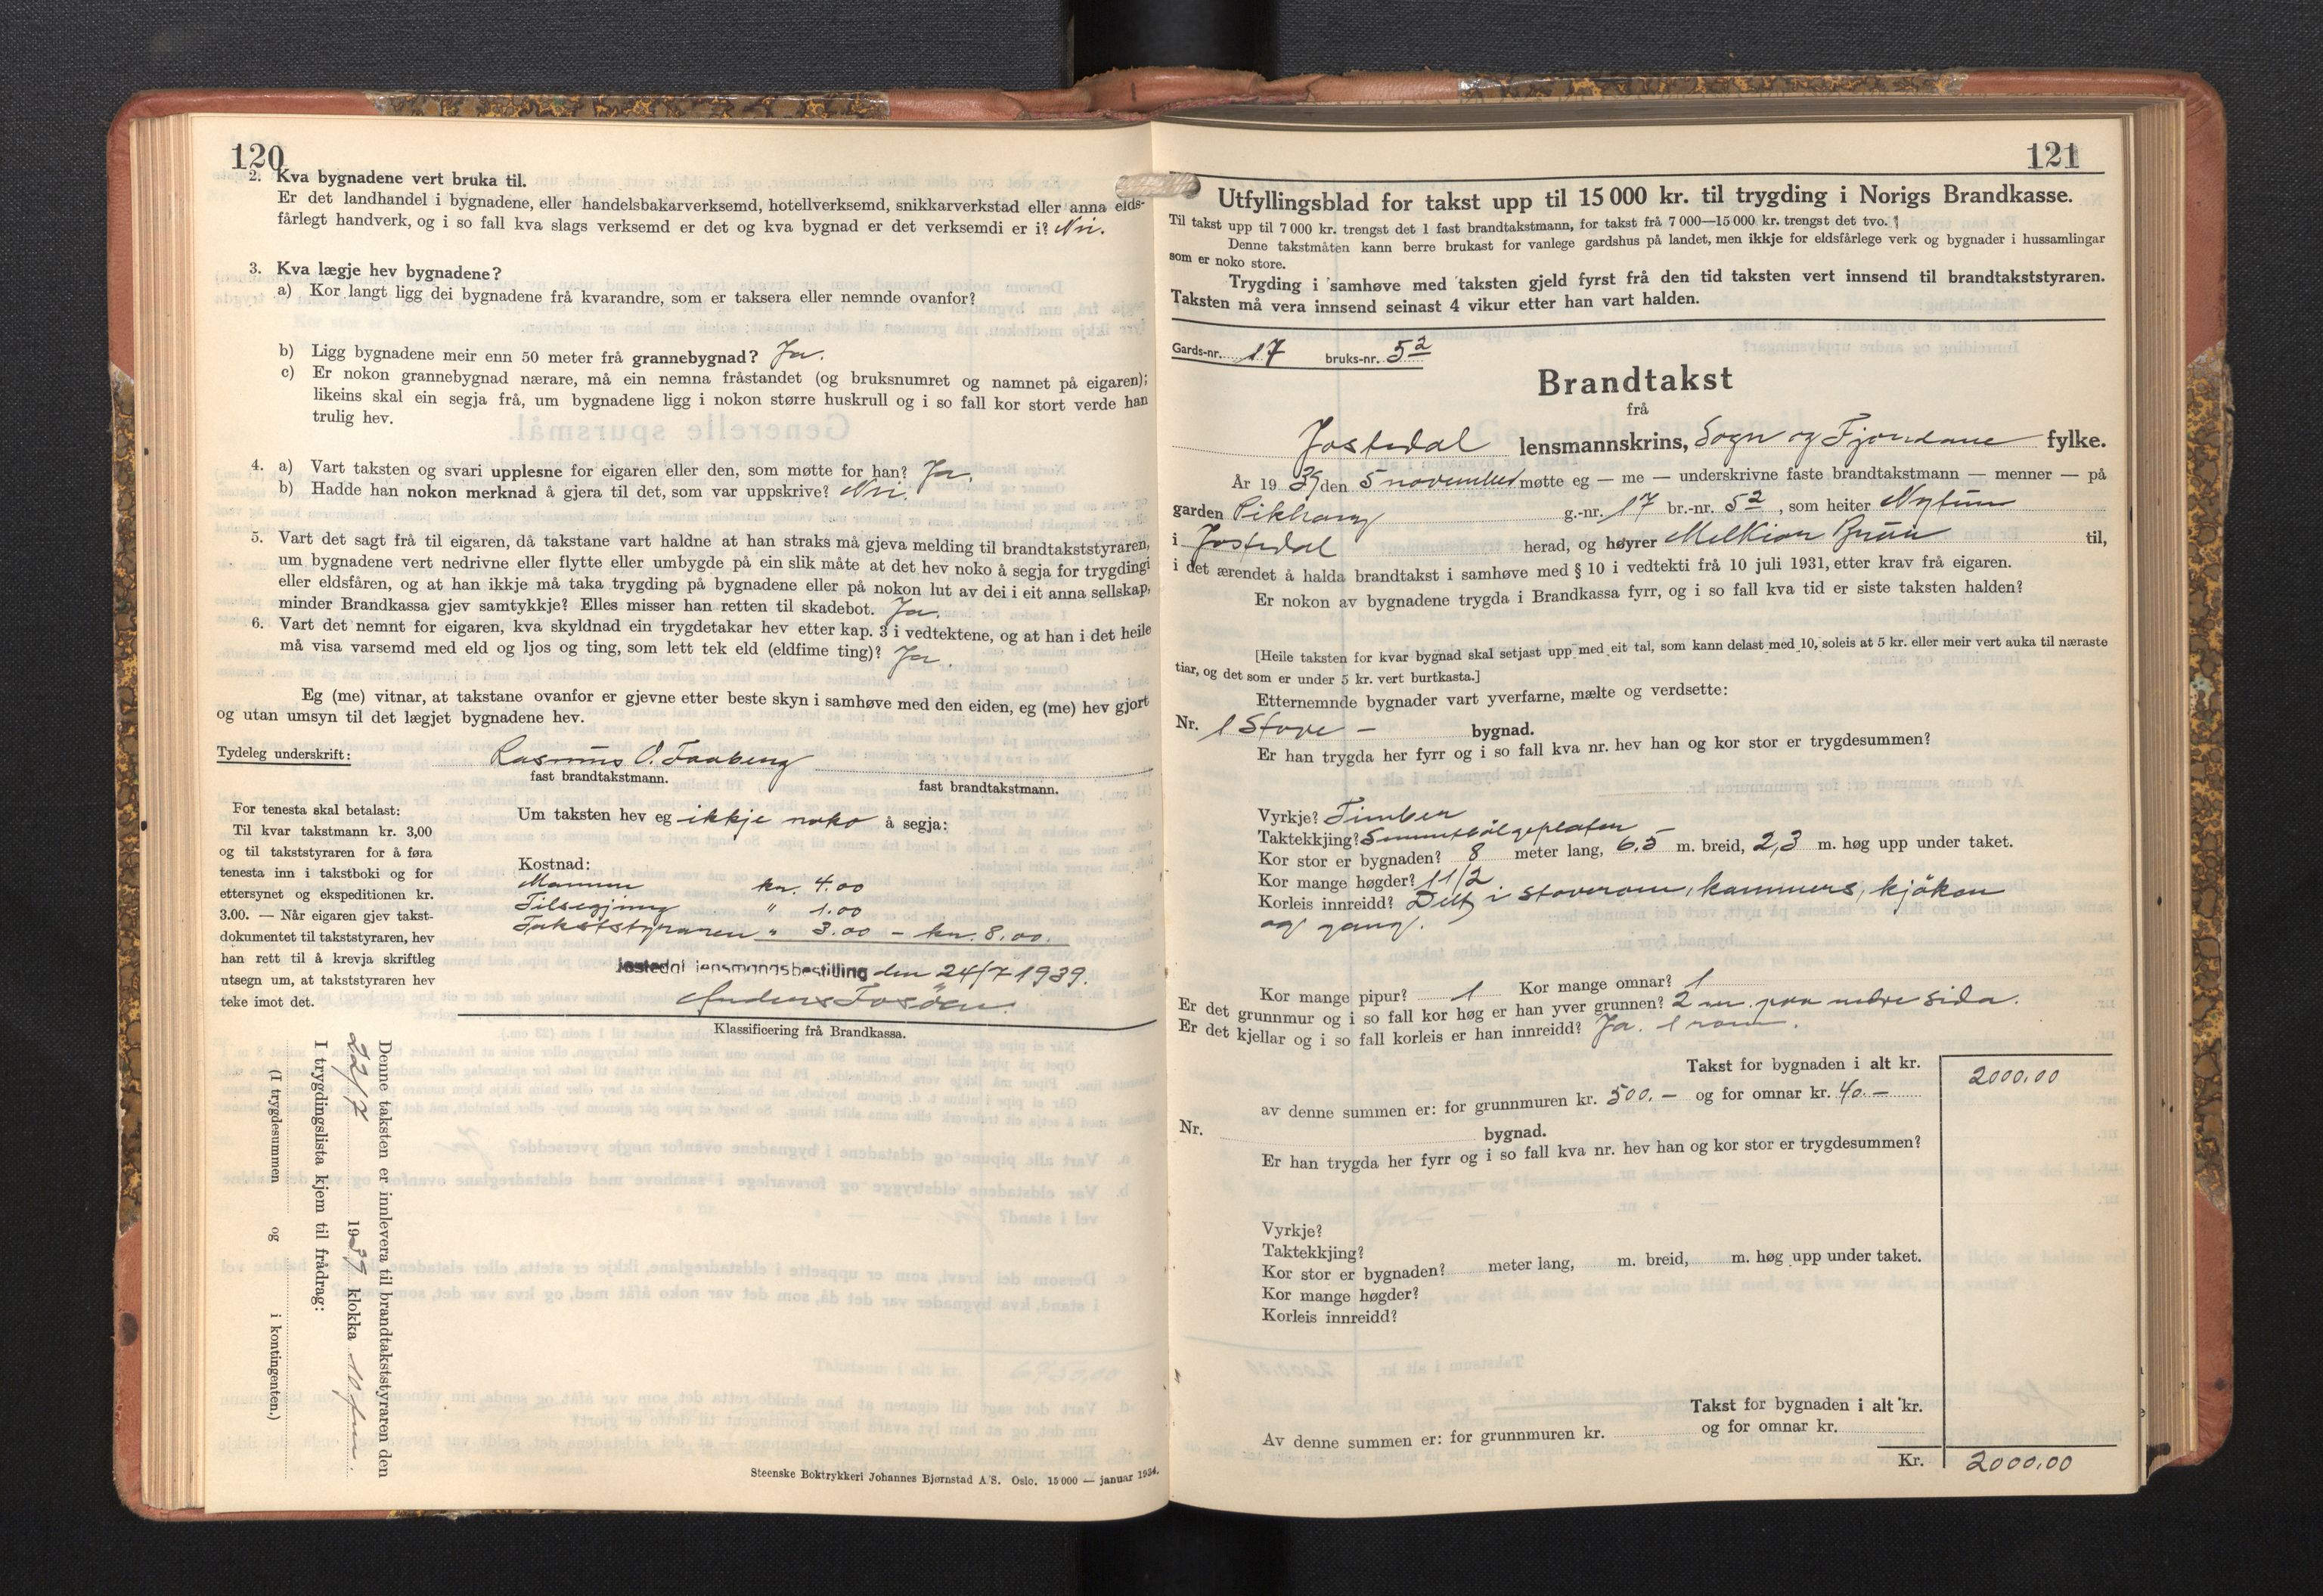 120
2. Kva bygnadene vert bruka til.
Er det landhandel i bygnadene, eller handelsbakarverksemd, hotellverksemd, snikkarverkstad eller anna elds-
fårlegt handverk, og i so fall kva slags verksemd er det og kva bygnad er det verksemdi er i? Nei.
3. Kva lægje hev bygnadene?
a) Kor langt ligg dei bygnadene frå kvarandre, som er taksera eller nemnde ovanfor?
b) Ligg bygnadene meir enn 50 meter frå grannebygnad? Ja.
c) Er nokon grannebygnad nærare, må ein nemna fråstandet (og bruksnumret og namnet på eigaren);
likeins skal ein segja frå, um bygnadene ligg i nokon større huskrull og i so fall kor stort verde han
trulig hev.
4. a) Vart taksten og svari upplesne for eigaren eller den, som møtte for han? Ja.
b) Hadde han nokon merknad å gjera til det, som var uppskrive? Nei.
5. Vart det sagt frå til eigaren, då takstane vart haldne at han straks må gjeva melding til brandtakststyraren,
um bygnadene vert nedrivne eller flytte eller umbygde på ein slik måte at det hev noko å segja for trygdingi
eller eldsfåren, og at han ikkje må taka trygding på bygnadene eller på nokon lut av dei i eit anna sellskap,
minder Brandkassa gjev samtykkje? Elles misser han retten til skadebot. Ja.
6. Vart det nemnt for eigaren, kva skyldnad ein trygdetakar hev etter kap. 3 i vedtektene, og at han i det heile
må visa varsemd med eld og ljos og ting, som lett tek eld (eldfime ting)? Ja.
Eg (me) vitnar, at takstane ovanfor er gjevne etter beste skyn i samhøve med den eiden, eg (me) hev gjort
og utan umsyn til det lægjet bygnadene hev.
Tydeleg underskrift: Rasmus O. Faaberg
fast brandtakstmann. fast brandtakstmann.
For tenesta skal betalast:
Til kvar takstmann kr. 3,00
og til takststyraren for å føra
tenesta inn i takstboki og for
ettersynet og ekspeditionen kr.
3.00. — Når eigaren gjev takst-
dokumentet til takststyraren, hev
han rett til å krevja skriftleg
utsegn um, at takststyraren hev
teke imot det.
Um taksten hev eg ikkje noko å segja:
Kostnad:
Mannen kr. 4.00
Tilsegjing " 1.00
Takststyraren " 3.00 - kr. 8.00.
Jostedal lensmannsbestilling den 24/7 1939.
Anders Fosøen.
Klassificering frå Brandkassa.
Denne taksten er innlevera til brandtakststyraren den
22/7 1939 klokka 10 fm.
I trygdingslista kjem til frådrag:
(I trygdesummen og i kontingenten.)
Steenske Boktrykkeri Johannes Bjørnstad A/S. Oslo. 15 000 — januar 1934.
121
Utfyllingsblad for takst upp til 15 000 kr. til trygding i Norigs Brandkasse.
Til takst upp til 7 000 kr. trengst det 1 fast brandtakstmann, for takst frå 7 000—15 000 kr. trengst det tvo.
Denne takstmåten kann berre brukast for vanlege gardshus på landet, men ikkje for eldsfårlege verk og bygnader i hussamlingar
som er noko store.
Trygding i samhøve med taksten gjeld fyrst frå den tid taksten vert innsend til brandtakststyraren.
Taksten må vera innsend seinast 4 vikur etter han vart halden.
Gards-nr. 17 bruks-nr. 52
Brandtakst
frå
Jostedal lensmannskrins, Sogn og Fjordane fylke.
År 1939 den 5 november møtte eg — me — underskrivne faste brandtakstmann — menner — på
garden Vikhaug g.-nr. 17 br.-nr. 52, som heiter Nytun
i Jostedal herad, og høyrer Melkior Bruu til,
i det ærendet å halda brandtakst i samhøve med § 10 i vedtekti frå 10 juli 1931, etter krav frå eigaren.
Er nokon av bygnadene trygda i Brandkassa fyrr, og i so fall kva tid er siste taksten halden?
[Heile taksten for kvar bygnad skal setjast upp med eit tal, som kann delast med 10, soleis at 5 kr. eller meir vert auka til næraste
tiar, og det som er under 5 kr. vert burtkasta.]
Etternemnde bygnader vart yverfarne, mælte og verdsette:
Nr. 1 Stove - bygnad.
Er han trygda her fyrr og i so fall kva nr. hev han og kor stor er trygdesummen?
Vyrkje? Timber
Taktekkjing? Sementbølgeplater
Kor stor er bygnaden? 8 meter lang, 6,5 m. breid, 2,3 m. høg upp under taket.
Kor mange høgder? 1 1/2
Korleis innreidd? Delt i stoverom, kammers, kjøken
og gang.
Kor mange pipur? 1 Kor mange omnar? 1
Er det grunnmur og i so fall kor høg er han yver grunnen? 2 m. paa nedre sida.
Er det kjellar og i so fall korleis er han innreidd? Ja. 1 rom.
Takst for bygnaden i alt kr. 2000,00
av denne summen er: for grunnmuren kr. 500.- og for omnar kr. 40.-
Nr. bygnad.
Er han trygda her fyrr og i so fall kva nr. hev han og kor stor er trygdesummen?
Vyrkje?
Taktekkjing?
Kor stor er bygnaden? meter lang, m. breid, m. høg upp under taket.
Kor mange høgder?
Korleis innreidd?
Takst for bygnaden i alt kr.
Av denne summen er: for grunnmuren kr. og for omnar kr.
Kr. 2000,00